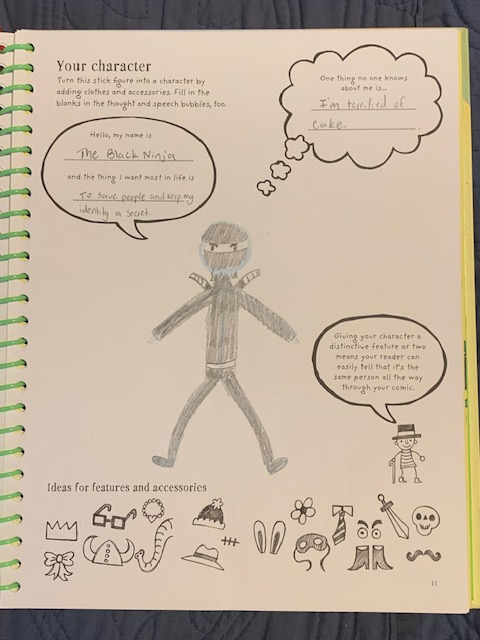 Your character
Turn this stick figure into a character by
adding clothes and accessories. Fill in the
blanks in the thought and speech bubbles, too.
One thing no one knows
about me is...
I'm terrified of
cake.
Hello, my name is
The Black Ninja
and the thing I want most in life is
To save people and keep my
identity a secret.
Giving your character a
distinctive feature or two
means your reader can
easily tell that it's the
same person all the way
through your comic.
Ideas for features and accessories
11